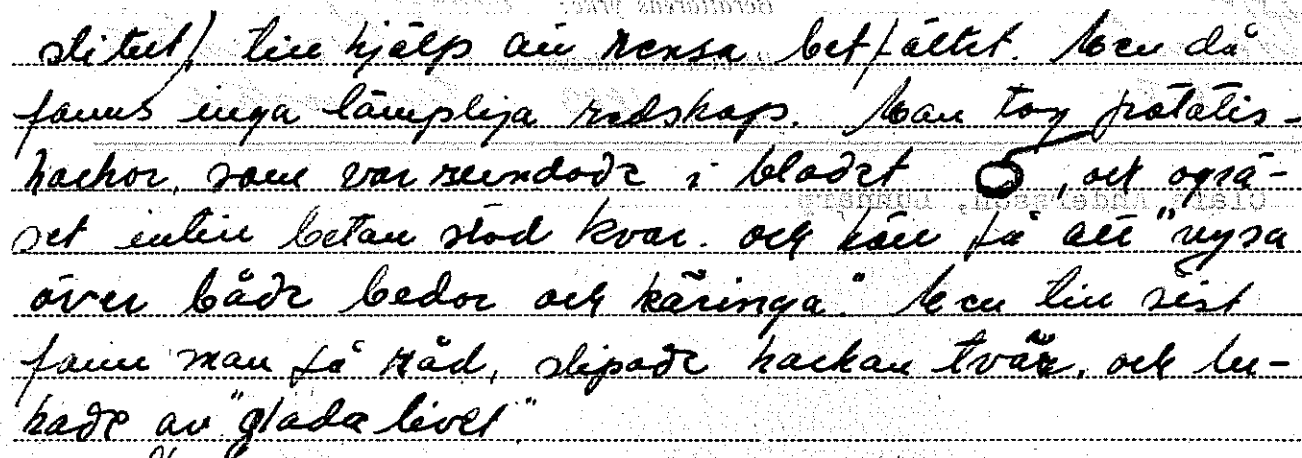 slitet) till hjälp att rensa betfältet. Men då
fanns inga lämpliga redskap. Man tog potatis-
hackor, som var rundade i bladet, och ogrä-
set intill betan stod kvar. och kom på att "rysa
över både bedor och käringa." Men till sist
fann man på råd, slipade hackan tvär, och lu-
kade av "glada livet"